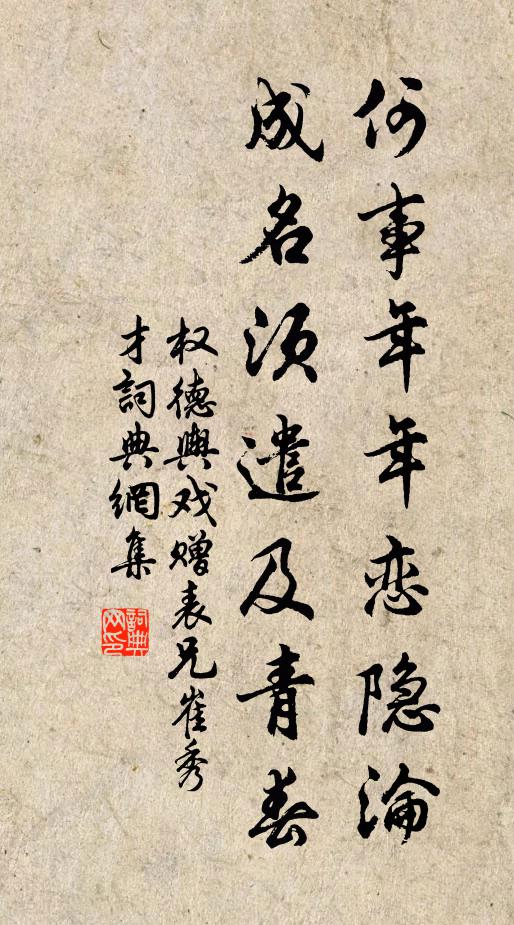 何事年年恋隐淪
成名须遣及青春
权德輿戏赠表兄崔秀
才詞典網集
詞典
网印